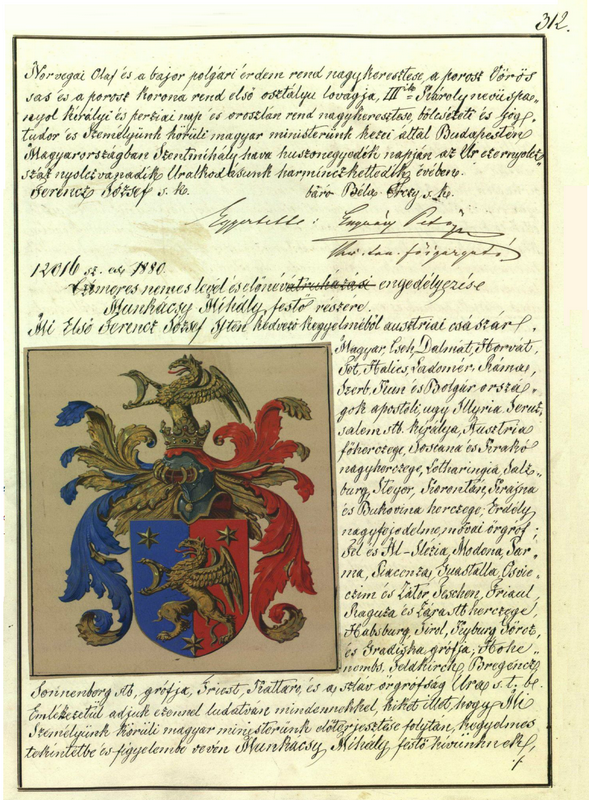 312.
Norvegai Olaf és a bajor polgári érdem rend nagykeresztese, a porosz Vörös
sas és a porosz korona rend első osztályu lovagja, III-ik Károly nevü spa-
nyol királyi és perziai nap és oroszlán rend nagykeresztese, bölcseleti és jog
tudor és Személyünk körüli magyar ministerünk kezei által Budapesten
Magyarországban Szentmihály hava huszonegyedik napján az Úr ezernyolcz
száz nyolczvanadik Uralkodásunk harminczkettedik évében.
Ferencz József s. k. báró Béla Orczy s. k.
Egyeztette:
12016 sz. ex 1880.
Czimeres nemes levél és előnév átruházási engedélyezése
Munkácsy Mihály festő részére.
Mi Első Ferencz József Isten kedvező kegyelméből ausztriai császár,
Magyar, Cseh, Dalmát, Horvát,
Tót, Halics, Ladomér, Ráma,
Szerb, Kun és Bolgár orszá-
gok apostoli, ugy Illyria Jeru-
salem stb. királya, Ausztria
főherczege, Toscana és Krakó
nagyherczege, Lotharingia, Salz-
burg, Steyer, Korontán, Krajna
és Bukovina herczege; Erdély
nagyfejedelme, morvai őrgróf;
Fel és Al-Slezia, Modena, Par-
ma, Piacenza, Guastalla, Osvie-
czim és Zátor, Teschen, Friaul,
Raguza és Zára stb herczege,
Habsburg, Tirol, Kyburg, Görcz,
és Gradiska grófja; Hohe-
nembs, Feldkirch, Bregencz
Sonnenberg stb. grófja, Triest, Kattaro, és a szláv őrgrófság Ura s. t. b.
Emlékezetül adjuk ezennel tudatván mindenkivel, kiket illet, hogy Mi
Személyünk körüli magyar ministerünk előterjesztése folytán, kegyelmes
tekintetbe és figyelembe vevén Munkácsy Mihály festő hivünknek,